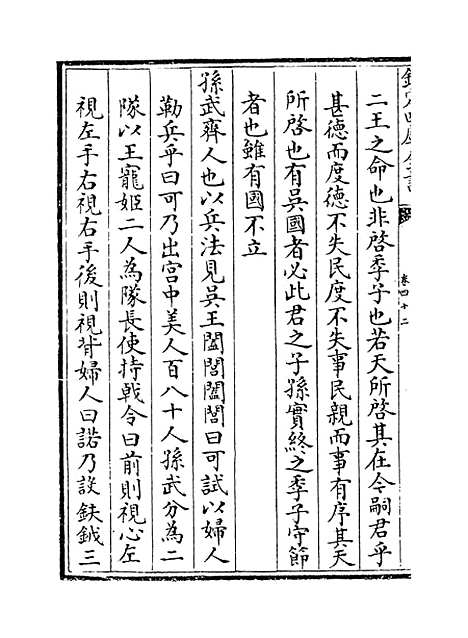 欽定四庫全書
卷四十二
二王之命也非啓季子也若天所啓其在令嗣君乎
甚德而度德不失民度不失事民親而事有序其天
所啓也有吳國者必此君之子孫實終之季子守節
者也雖有國不立
孫武齊人也以兵法見吳王闔閭闔閭曰可試以婦人
勒兵乎曰可乃出宮中美人百八十人孫武分為二
隊以王寵姬二人為隊長使持戟令曰前則視心左
視左手右視右手後則視背婦人曰諾乃設鈇鉞三